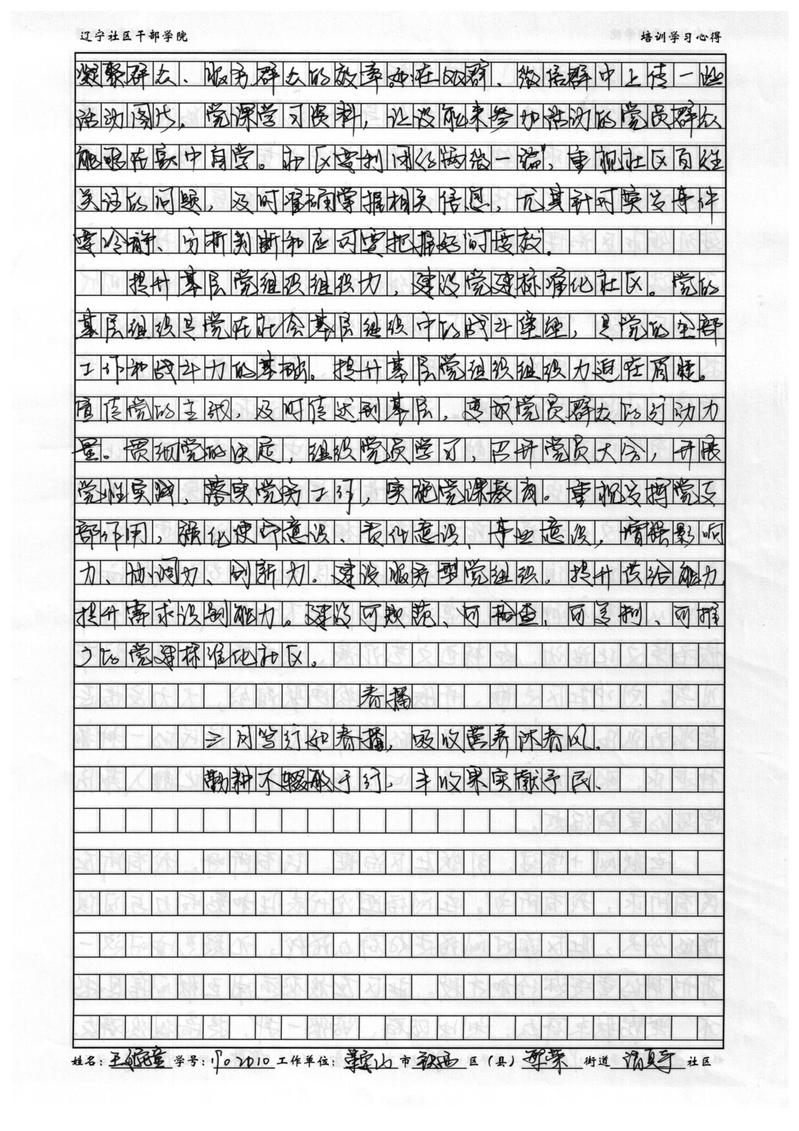 辽宁社区干部学院 培训学习心得
凝聚群众、服务群众的效率如在QQ群、微信群中上传一些
活动图片,党课学习资料,让没能来参加活动的党员群众
能够在家中自学。社区要利用任网格一端,重视社区百姓
关注的问题,及时准确掌握相关信息,尤其针对突发事件
要冷静、分析判断和应对要把握好"时度效"。
提升基层党组织组织力,建设党建标准化社区。党的
基层组织是党在社会基层组织中的战斗堡垒,是党的全部
工作和战斗力的基础。提升基层党组织组织力迫在眉睫。
宣传党的主张,及时传达到基层,变成党员群众的行动力
量。贯彻党的决定,组织党员学习,召开党员大会,开展
党性实践,落实党务工作,实施党课教育。重视发挥党支
部作用,强化使命意识、责任意识、事业意识,增强影响
力、协调力、创新力。建设服务型党组织。提升供给能力
提升需求识别能力。建设可规范、可检查、可复制、可推
广的党建标准化社区。
春播
三月笃行如春播,吸收营养沐春风。
勤耕不辍敏于行,丰收果实献予民。
姓名: 学号: 2010 工作单位:鞍山 市 铁西 区(县) 繁荣 街道 社区